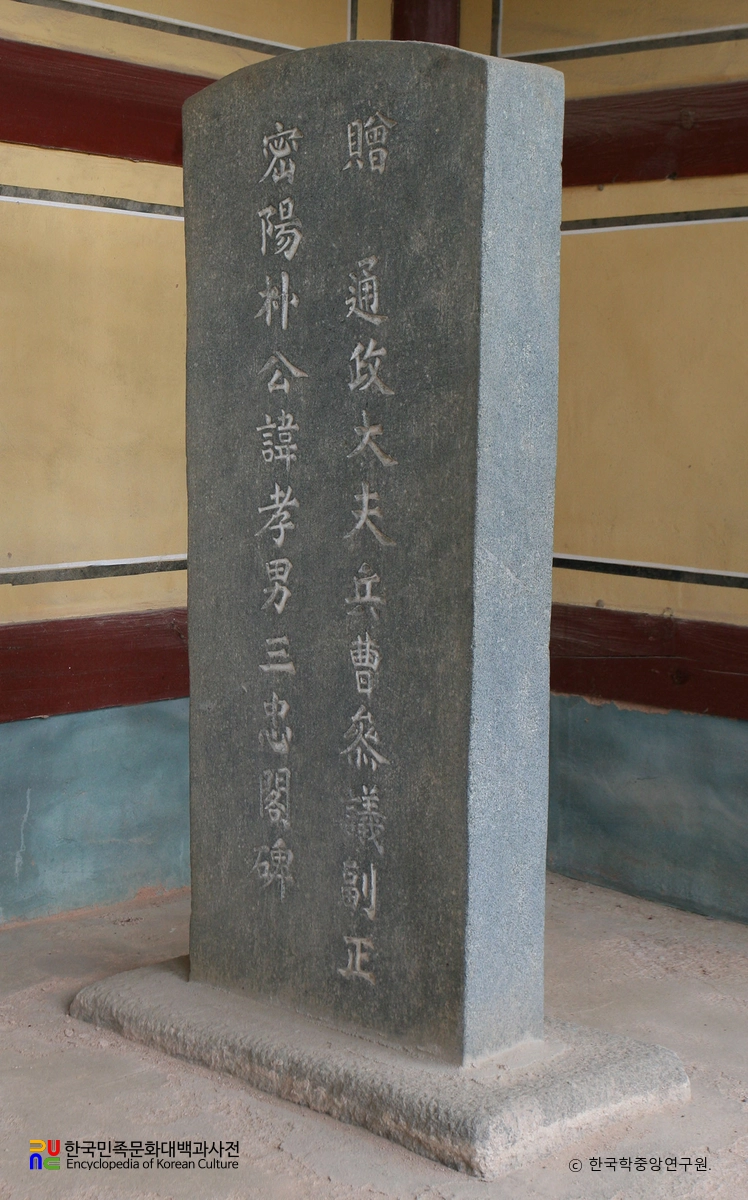 贈 通政大夫兵曹叅議副正
密陽朴公諱孝男三忠閣碑
한국민족문화대백과사전
Encyclopedia of Korean Culture
ⓒ 한국학중앙연구원.